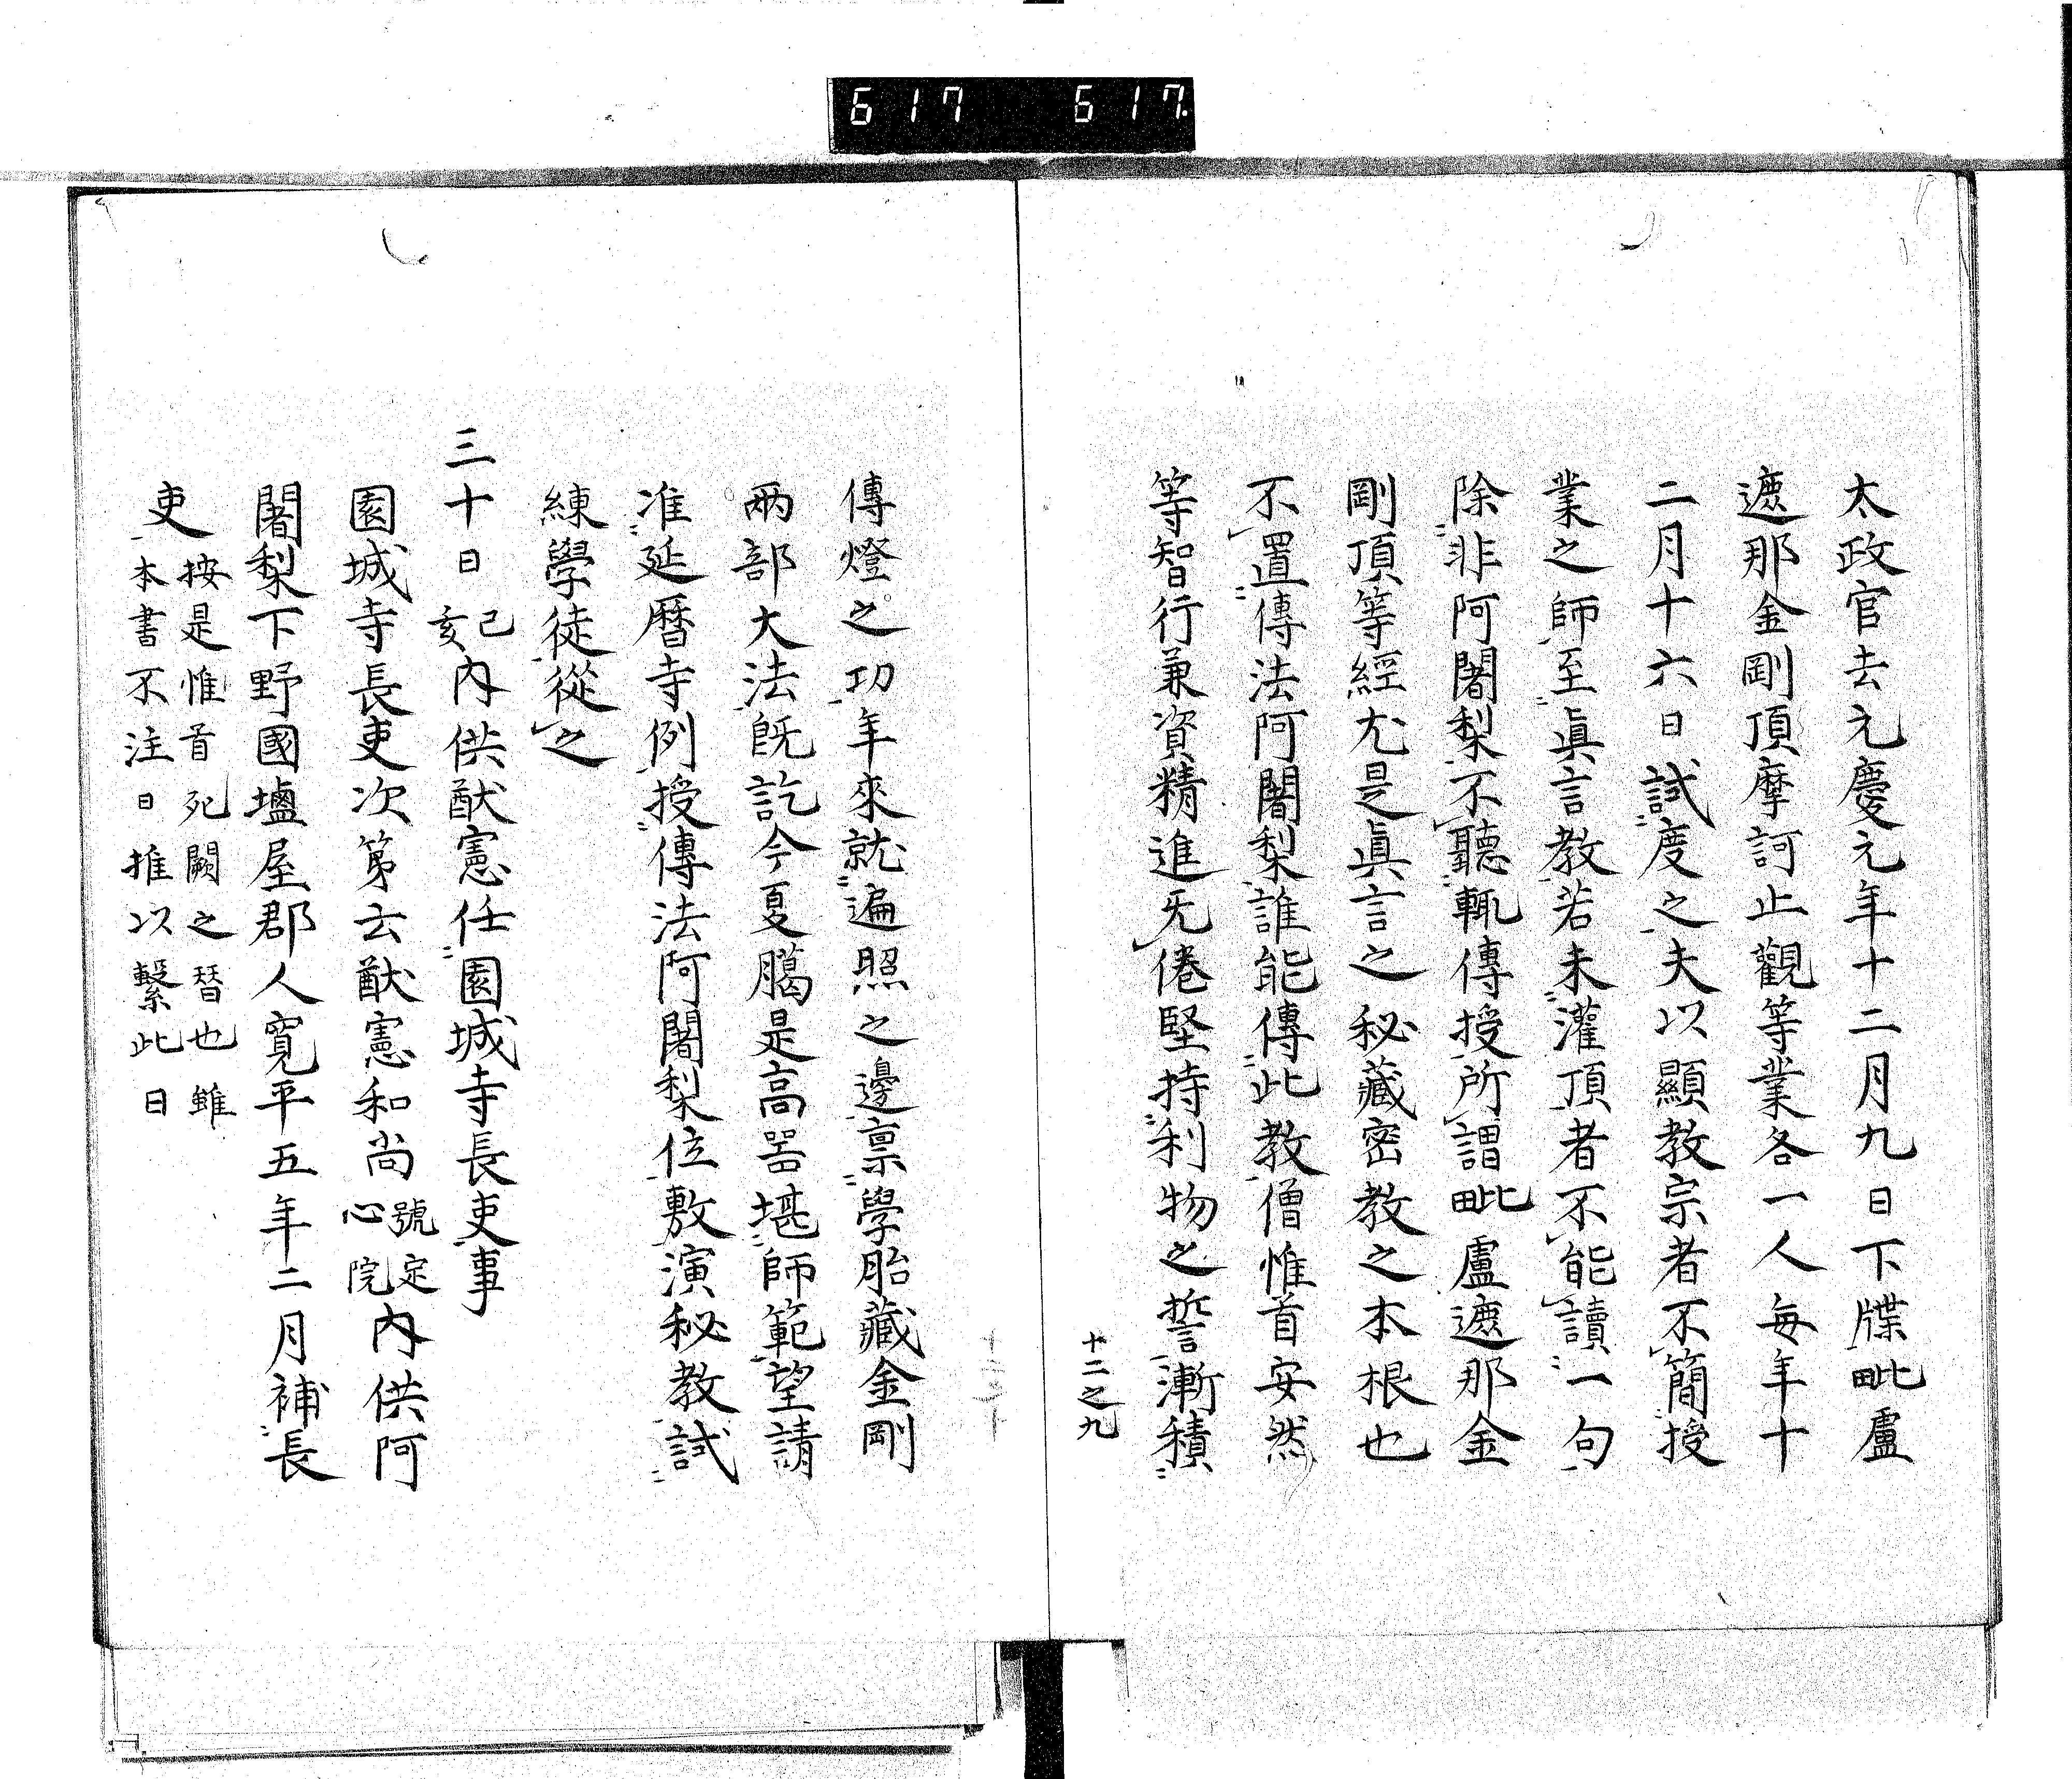 617 617
太政官去元慶元年十二月九日下牒毗盧
遮那金剛頂摩訶止觀等業各一人毎年十
二月十六日試度之夫以顯教宗者不簡授
業之師至眞言教若未灌頂者不能讀一句
除非阿闍梨不聽輙傳授所謂毗盧遮那金
剛頂等經尤是眞言之秘藏密教之本根也
不置傳法阿闍梨誰能傳此教僧惟首安然
等智行兼資精進无倦堅持利物之誓漸積
十二之九
傳燈之功年來就遍照之邊禀學胎藏金剛
兩部大法既訖今夏臈是高器堪師範望請
准延暦寺例授傳法阿闍梨位敷演秘教試
練學徒從之
三十日己亥内供猷憲任園城寺長吏事
園城寺長吏次第云猷憲和尚號定心院内供阿
闍梨下野國壚屋郡人寛平五年二月補長
吏按是惟首死闕之替也雖
本書不注日推以繋此日